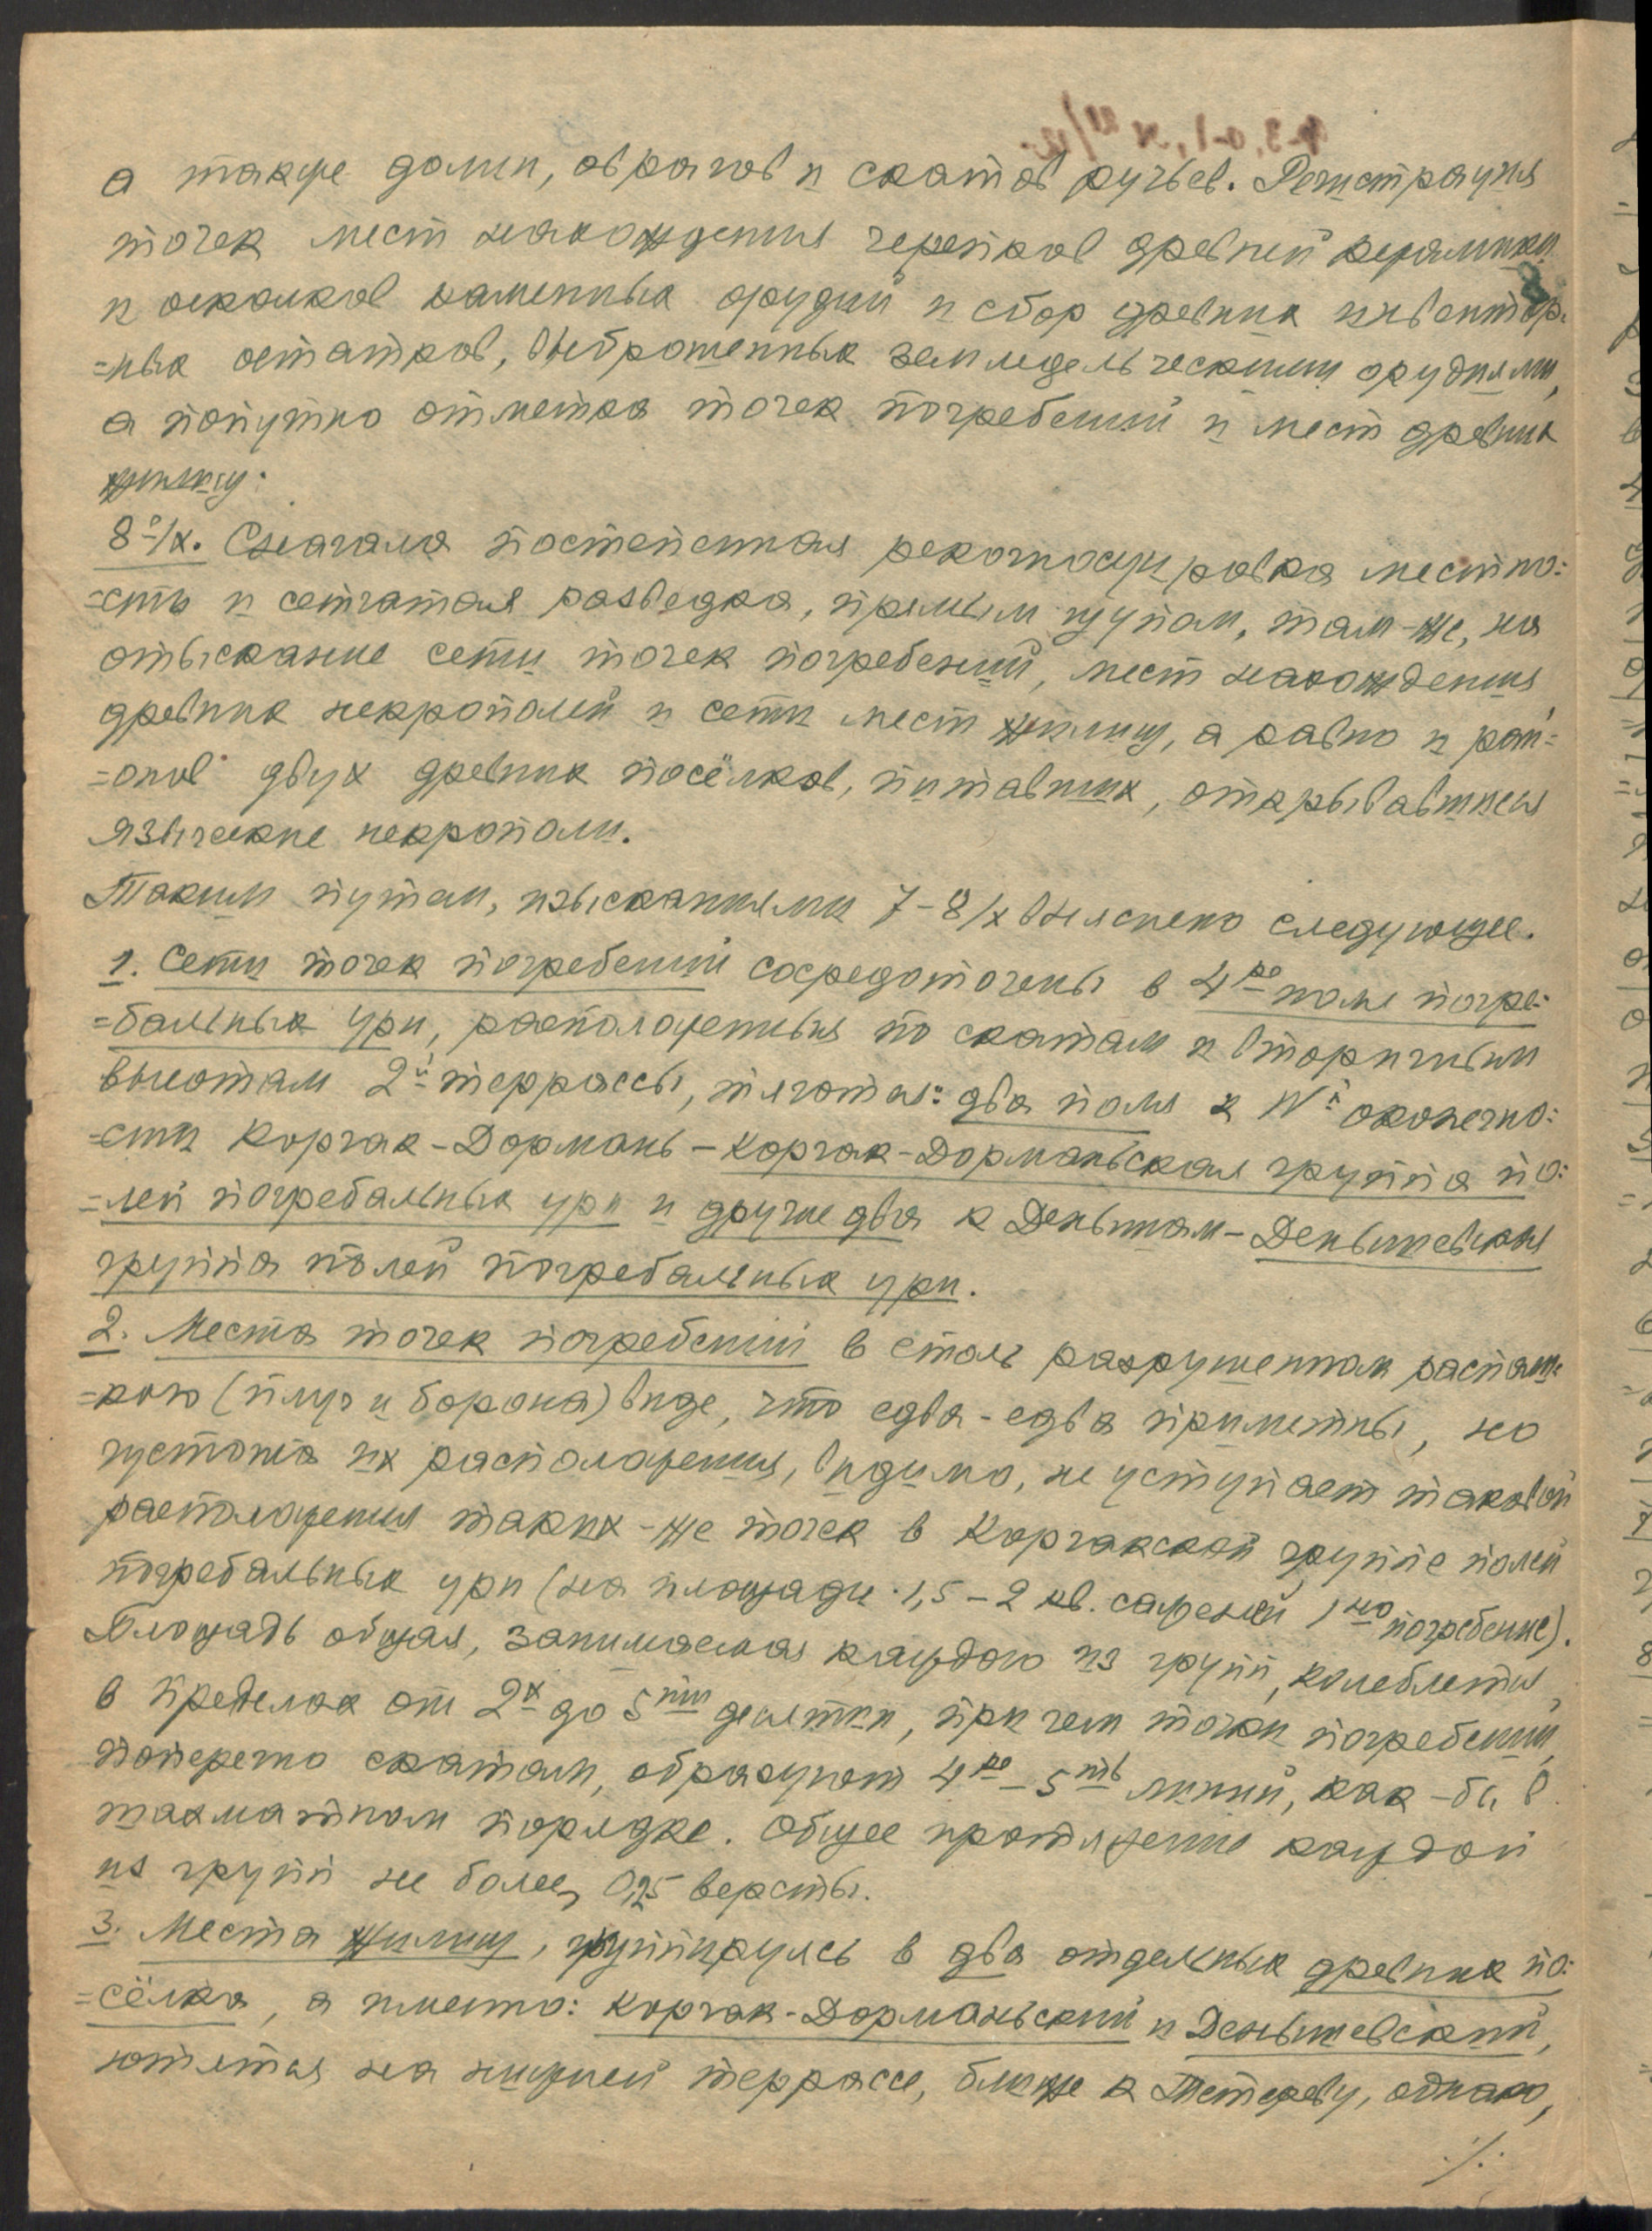 а также долин, оврагов и скатов ручьев. Регистрация
точек мест нахождения черепков древней керамики
и осколков каменных орудий и сбор древних инвентар-
=ных остатков, выброшенных земледельческими орудиями,
а попутно отметка точек погребений и мест древних
жилищ.
8-/X. Сначала постепенная рекогносцировка местно:
=сть и сетчатая разведка, прямым щупом, там-же, на
отыскание сети точек погребений, мест нахождения,
древних некрополей и сети мест жилищ, а равно и рай=
=онов двух древних посёлков, питавших, открывавшиеся
языческие некрополи.
Таким путем, изысканиями 7-8/X выяснено следующее.
1. Сети точек погребений сосредоточены в 4ре поля погре:
=бальных урн, расположенных по скатам и вторичным
высотам 2й террассы, тяготея: два поля к Nй оконечно:
=сти Корчак-Дормань – Корчак-Дорманьская группа по:
=лей погребальных урн и другие два к Денышам – Денышевская
группа полей погребальных урн.
2. Места точек погребений в столь разрушенном распаш-
=кою (плуг и борона) виде, что едва-едва приметны, но
густота их расположения, видимо, не уступает таковой
расположения таких-же точек в Корчакской группе полей
погребальных урн (на площади 1,5 – 2 кв. саженей 1но погребение).
Площадь общая, занимаемая каждою из групп, колеблется,
в пределах от 2х до 5ти десятин, при чем точки погребений,
поперечно скатам, образуют 4ре – 5ть линий, как-бы в
шахматном порядке. Общее протяжение каждой
из групп не более 0,25 версты.
3. Места жилищ, группируясь в два отдельных древних по:
=сёлка, а именно: Корчак-Дорманьский и Денышевский,
ютятся на нижней террассе, ближе к Тетереву, однако,
./.